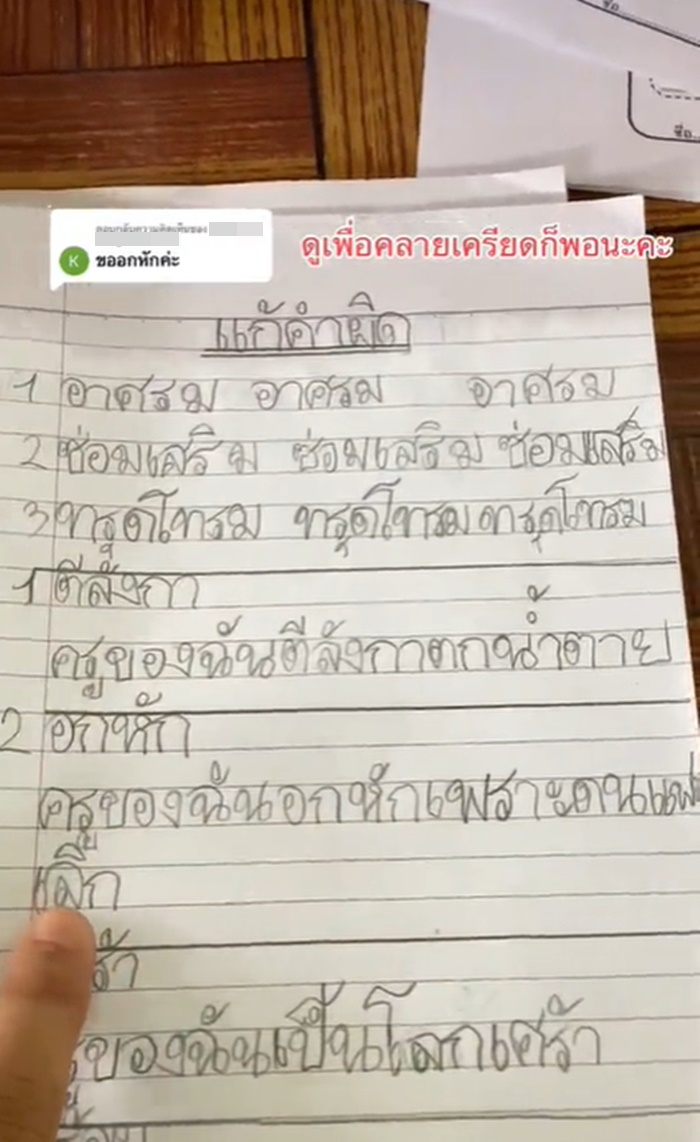 ชื่อ
ชื่อ
ตอบกลับความคิดเห็นของ
K ขออกหักค่ะ
ดูเพื่อคลายเครียดก็พอนะคะ
แก้คำผิด
1 อาศรม อาศรม อาศรม
2 ซ่อมเสริม ซ่อมเสริม ซ่อมเสริม
3 ทรุดโทรม ทรุดโทรม ทรุดโทรม
1 ตีลังกา
ครูของฉันตีลังกาตกน้ำตาย
2 อกหัก
ครูของฉันอกหักเพราะคนแฟน
เลิก
ร้า
ของฉันเป็นโลกเศร้า